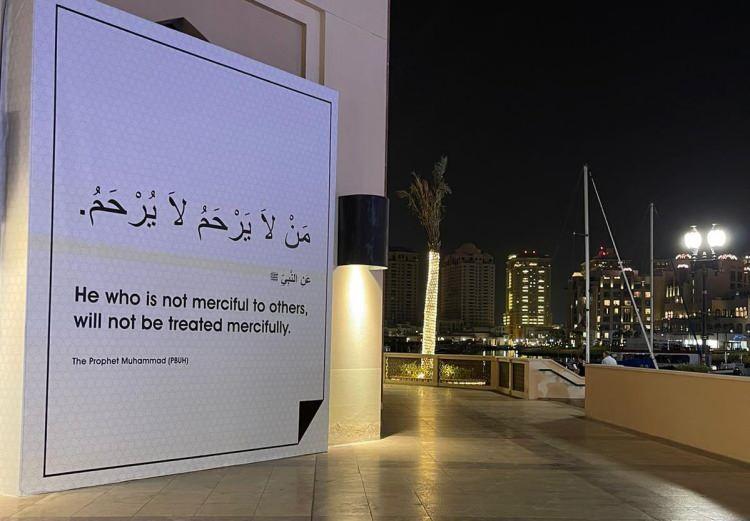 مَنْ لاَ يَرْحَمُ لاَ يُرْحَمُ.
عن النَّبِيّ ﷺ
He who is not merciful to others,
will not be treated mercifully.
The Prophet Muhammad (PBUH)